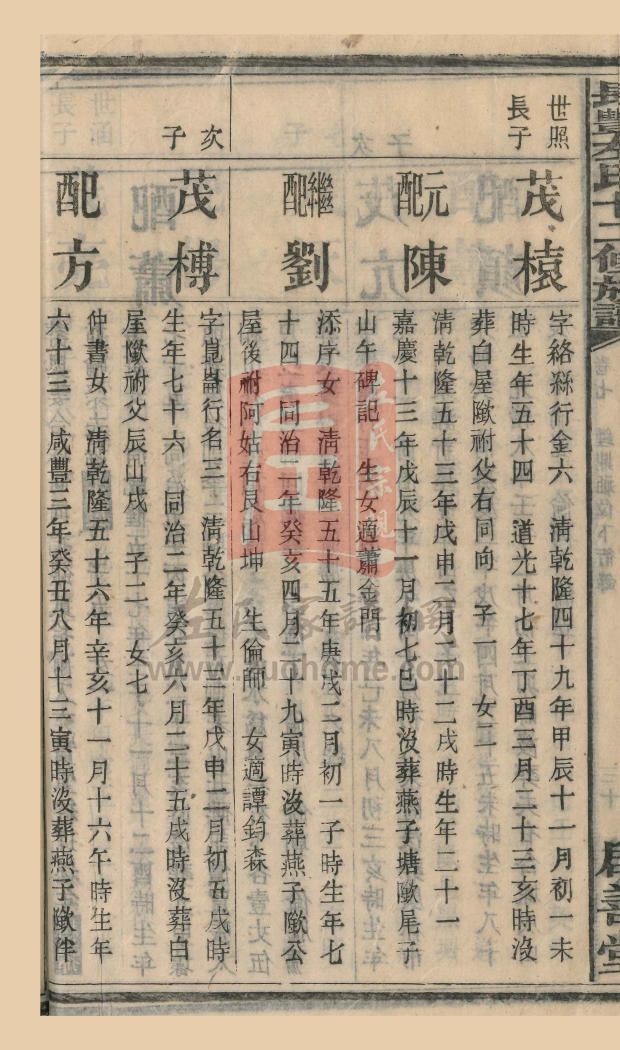 長豐左氏十二修族譜
卷七
三十
居善堂
世照
長子
茂榬
字絡繇行金六　清乾隆四十九年甲辰十一月初一未
時生年五十四　道光十七年丁酉三月二十三亥時沒
葬白屋歐祔父右同向　子一　女二
元配陳
清乾隆五十三年戊申二月二十二戌時生年二十一
嘉慶十三年戊辰十一月初七巳時沒葬燕子塘歐尾子
山午碑記　生女適蕭金門
繼配劉
添序女　清乾隆五十五年庚戌二月初一子時生年七
十四　同治二年癸亥四月二十九寅時沒葬燕子歐公
屋後祔阿姑右艮山坤　生倫師　女適譚鈞森
次子
茂榑
字崑崙行名三　清乾隆五十三年戊申二月初五戌時
生年七十六　同治二年癸亥六月二十五戌時沒葬白
屋歐祔父辰山戌　子二　女七
配方
仲書女　清乾隆五十六年辛亥十一月十六午時生年
六十三　咸豐三年癸丑八月十三寅時沒葬燕子歐伴
左氏宗親
左氏家譜網
www.zuohome.com